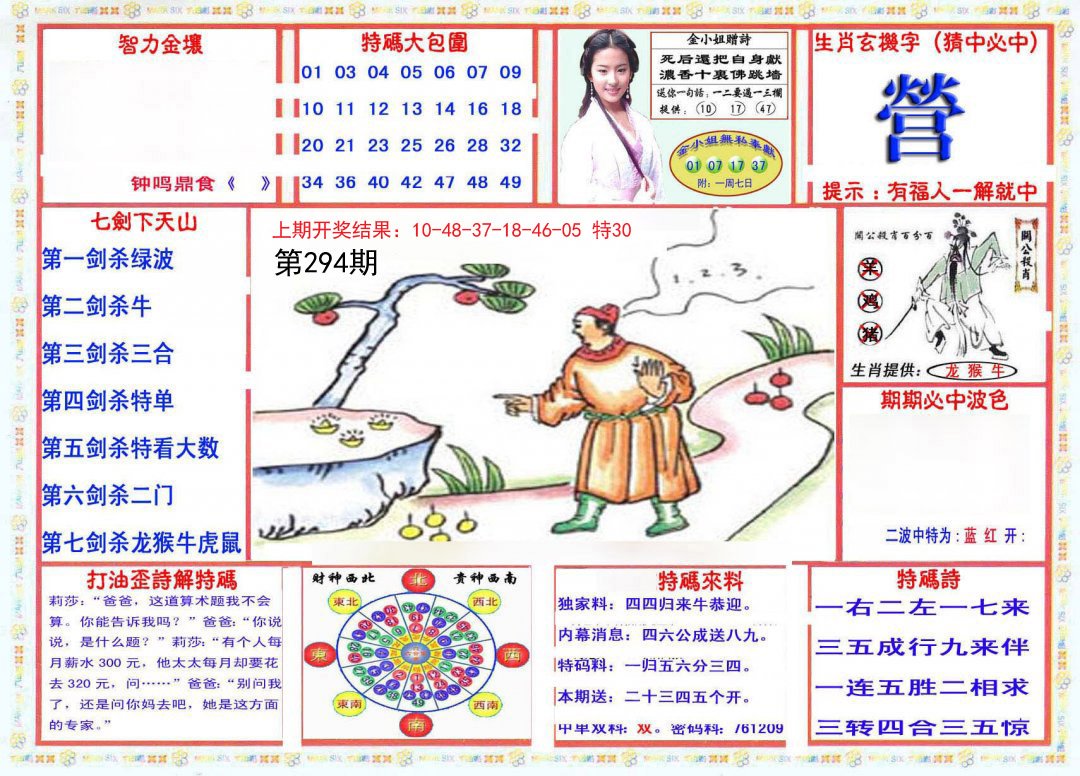 智力金壤
钟鸣鼎食《 》
特碼大包圍
01 03 04 05 06 07 09
10 11 12 13 14 16 18
20 21 23 25 26 28 32
34 36 40 42 47 48 49
金小姐贈詩
死后還把自身獻
濃香十裏佛跳墙
送你一句話:一二要過一三欄
提供: 10 17 47
金小姐無私奉獻
01 07 17 37
附:一周七日
生肖玄機字(猜中必中)
營
提示:有福人一解就中
七劍下天山
第一剑杀绿波
第二剑杀牛
第三剑杀三合
第四剑杀特单
第五剑杀特看大数
第六剑杀二门
第七剑杀龙猴牛虎鼠
上期开奖结果: 10-48-37-18-46-05 特30
第294期
1.2.3.
關公殺肖百分百
關公殺肖
羊
鸡
猪
生肖提供: 龙 猴 牛
期期必中波色
二波中特为:蓝 红 开:
打油歪詩解特碼
莉莎:“爸爸,这道算术题我不会
算。你能告诉我吗?”爸爸:“你说
说,是什么题?” 莉莎:“有个人每
月薪水 300 元,他太太每月却要花
去 320 元,问……”爸爸:“别问我
了,还是问你妈去吧,她是这方面
的专家。”
財神西北 貴神西南
北
東北 西北
東 西
東南 西南
南
特碼來料
独家料:四四归来牛恭迎。
内幕消息:四六公成送八九。
特码料:一归五六分三四。
本期送:二十三四五个开。
中单双料:双。密码料:761209
特碼詩
一右二左一七来
三五成行九来伴
一连五胜二相求
三转四合三五惊